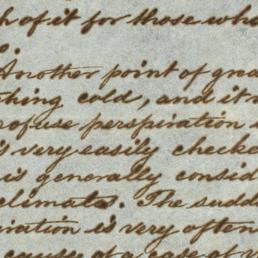 h of it for those who
o.
Another point of grea
thing cold, and it
rofuse perspiration
is very easily checke
is generally consid
climates. The sudd
iration is very often
cause of a case of